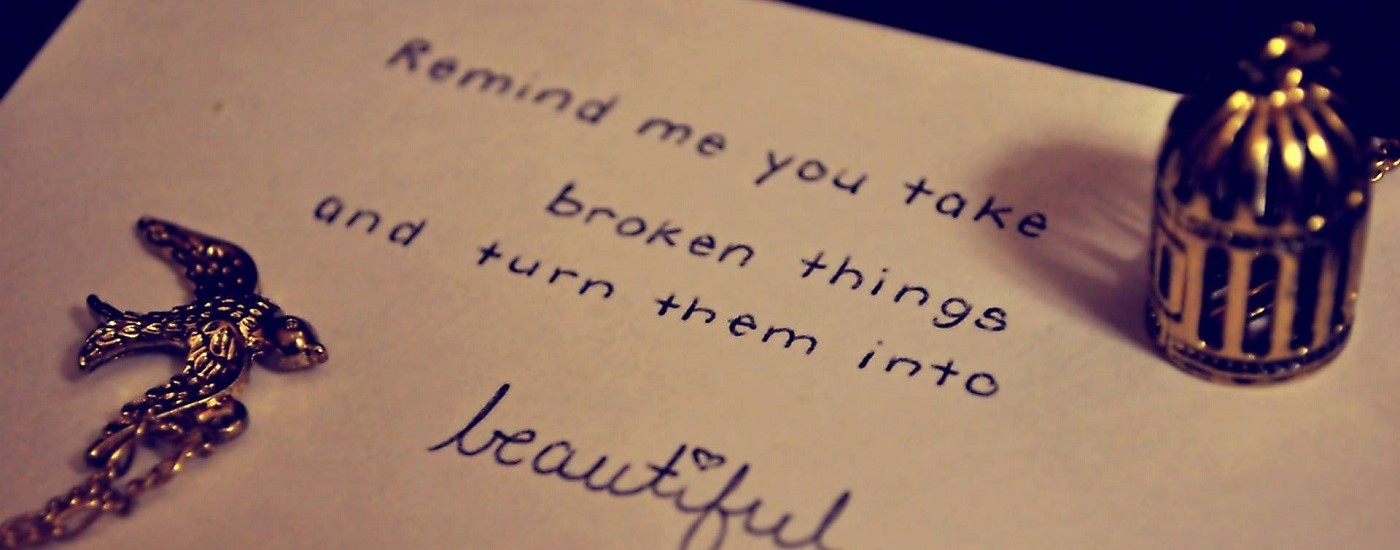 Remind me you take
broken things
and turn them into
beautiful